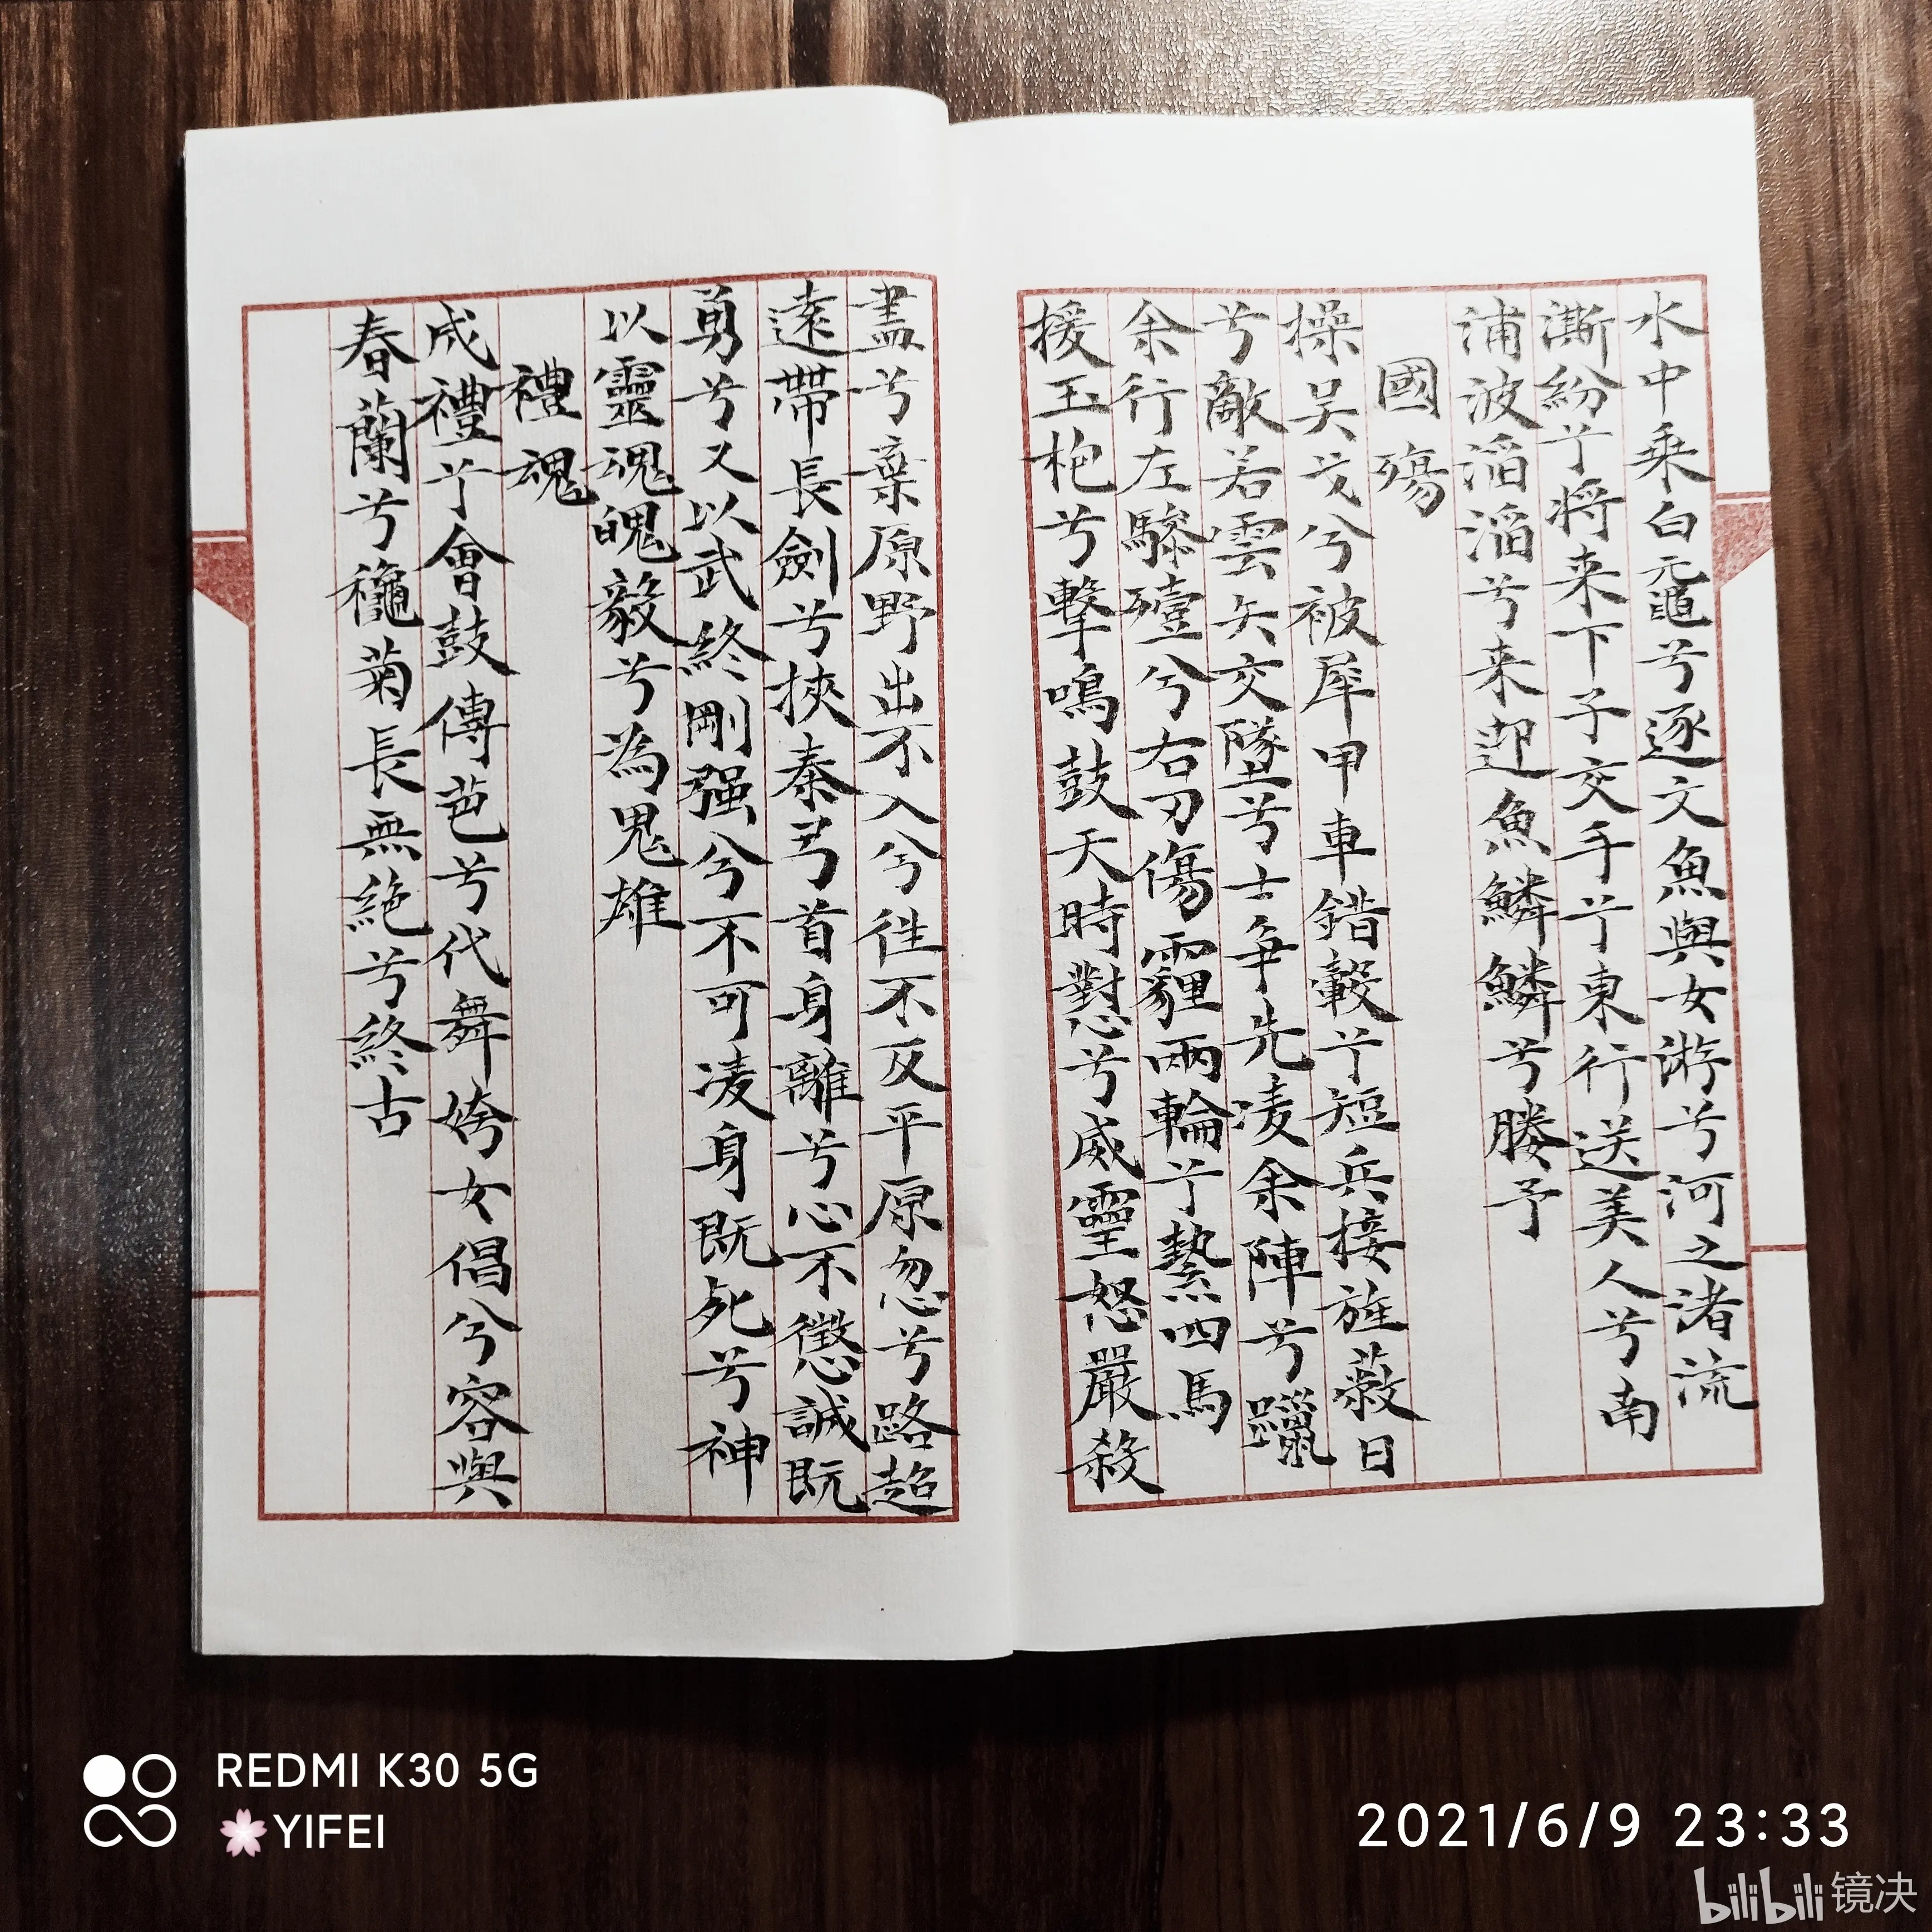 水中乘白黿兮逐文魚與女游兮河之渚流
澌紛兮将来下子交手兮東行送美人兮南
浦波滔滔兮来迎魚鱗鱗兮媵予
國殤
操吴戈兮被犀甲車錯轂兮短兵接旌蔽日
兮敵若雲矢交墜兮士争先凌余陣兮躐
余行左驂殪兮右刃傷霾兩輪兮縶四馬
援玉枹兮擊鳴鼓天時懟兮威靈怒嚴殺
盡兮棄原野出不入兮往不反平原忽兮路超
遠帶長劍兮挾秦弓首身離兮心不懲誠既
勇兮又以武終剛强兮不可凌身既死兮神
以靈魂魄毅兮為鬼雄
禮魂
成禮兮會鼓傳芭兮代舞姱女倡兮容與
春蘭兮龝菊長無絶兮終古
REDMI K30 5G
🌸YIFEI
2021/6/9 23:33
bilibili 镜决